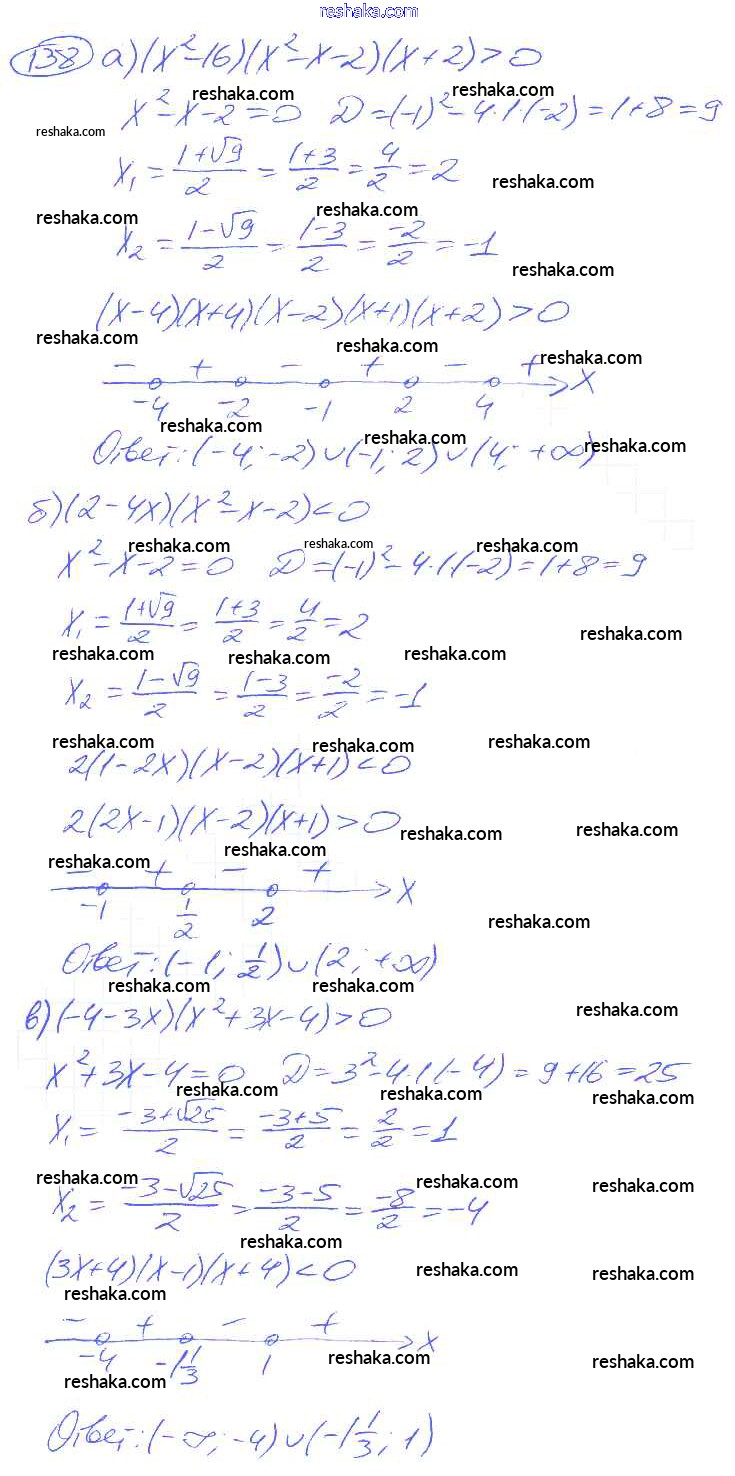 reshaka.com
138 а) (x²-16)(x²-x-2)(x+2)>0
reshaka.com reshaka.com
x²-x-2=0 D=(-1)²-4·1·(-2)=1+8=9
reshaka.com
x₁ = (1+√9)/2 = (1+3)/2 = 4/2 = 2
reshaka.com
reshaka.com reshaka.com
x₂ = (1-√9)/2 = (1-3)/2 = -2/2 = -1
reshaka.com
(x-4)(x+4)(x-2)(x+1)(x+2)>0
reshaka.com reshaka.com reshaka.com
- + - + - +
-4 -2 -1 2 4 x
reshaka.com reshaka.com reshaka.com
Ответ: (-4; -2)∪(-1; 2)∪(4; +∞)
б) (2-4x)(x²-x-2)<0
reshaka.com reshaka.com reshaka.com
x²-x-2=0 D=(-1)²-4·1·(-2)=1+8=9
x₁ = (1+√9)/2 = (1+3)/2 = 4/2 = 2
reshaka.com
reshaka.com reshaka.com reshaka.com
x₂ = (1-√9)/2 = (1-3)/2 = -2/2 = -1
reshaka.com reshaka.com reshaka.com
2(1-2x)(x-2)(x+1)<0
2(2x-1)(x-2)(x+1)>0
reshaka.com reshaka.com
reshaka.com reshaka.com
- + - +
-1 1/2 2 x
reshaka.com
Ответ: (-1; 1/2)∪(2; +∞)
reshaka.com reshaka.com
в) (-4-3x)(x²+3x-4)>0
reshaka.com
x²+3x-4=0 D=3²-4·1·(-4)=9+16=25
reshaka.com reshaka.com reshaka.com
x₁ = (-3+√25)/2 = (-3+5)/2 = 2/2 = 1
reshaka.com reshaka.com reshaka.com
x₂ = (-3-√25)/2 = (-3-5)/2 = -8/2 = -4
reshaka.com
(3x+4)(x-1)(x+4)<0
reshaka.com reshaka.com
reshaka.com
- + - +
-4 -1 1/3 1 x
reshaka.com reshaka.com
reshaka.com
Ответ: (-∞; -4)∪(-1 1/3; 1)